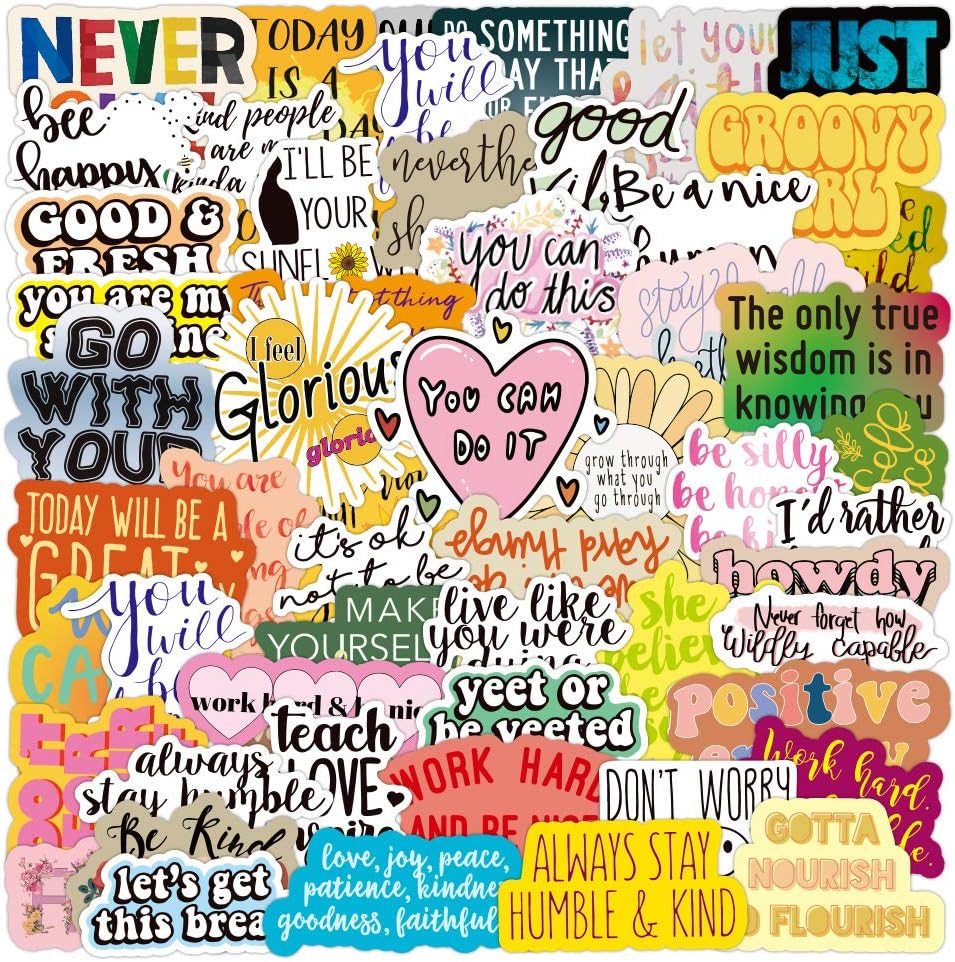 NEVER
TODAY
IS A
you
will
be
DO SOMETHING
THAT
let your
JUST
bee
happy
kind people
are m
kinda
I'LL BE
YOUR
SUNFL
neverthe
sh
good
Be a nice
human
GROOVY
GIRL
GOOD &
FRESH
you can
do this
you are m
thing
stay
The only true
wisdom is in
knowing you
GO
WITH
YOUR
I feel
Glorious
glorio
YOU CAN
DO IT
grow through
what you
go through
be silly
be honest
be kind
You are
TODAY WILL BE A
GREAT
it's ok
not to be
hard things
we can do
I'd rather
howdy
you
will
be
MAKE
YOURSELF
live like
you were
dying
she
believe
Never forget how
Wildly capable
CA
work hard & be nice
yeet or
be yeeted
positive
energy
DO IT
FOR
teach
LOVE
inspire
always
stay humble
WORK HARD
AND BE NICE
DON'T WORRY
Work hard.
Be Kind
let's get
this brea
love, joy, peace,
patience, kindne
goodness, faithful
ALWAYS STAY
HUMBLE & KIND
GOTTA
NOURISH
TO FLOURISH